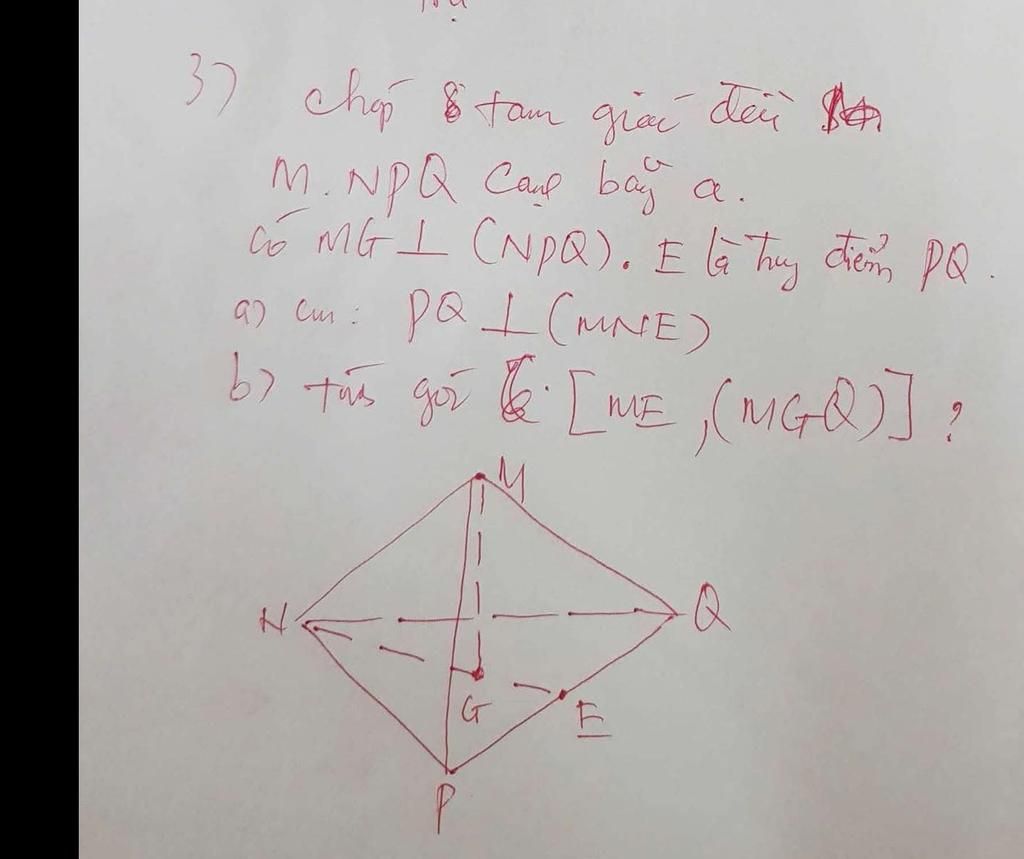 3) Chóp tam giác đều
M.NPQ cạnh bằng a.
Có MG ⊥ (NPQ). E là trung điểm PQ.
a) cm: PQ ⊥ (MNE)
b) tính góc [ME, (MGQ)] ?
M
N
Q
G
E
P